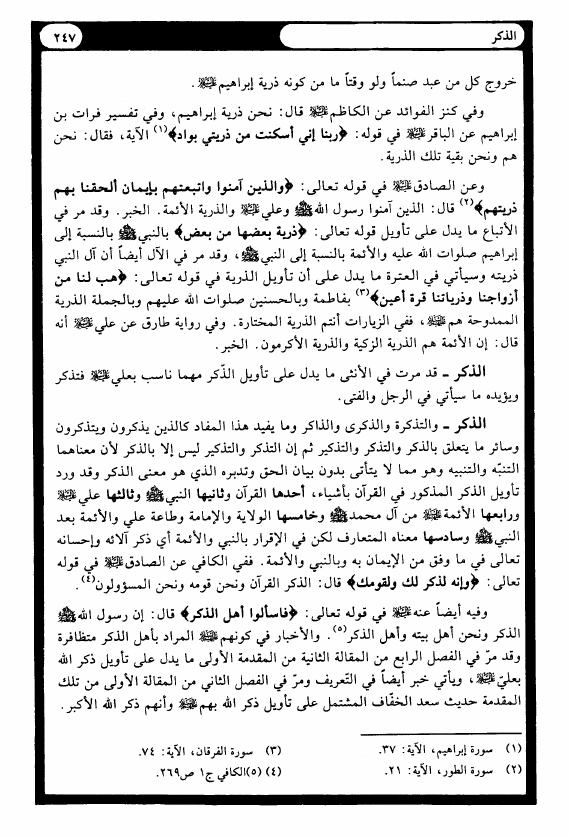 الذكر
٢٤٧
خروج كل من عبد صنماً ولو وقتاً ما من كونه ذرية إبراهيم ﷺ .
وفي كنز الفوائد عن الكاظم ﷺ قال: نحن ذرية إبراهيم، وفي تفسير فرات بن
إبراهيم عن الباقر ﷺ في قوله: ﴿ربنا إني أسكنت من ذريتي بواد﴾(١) الآية، فقال: نحن
هم ونحن بقية تلك الذرية.
وعن الصادق ﷺ في قوله تعالى: ﴿والذين آمنوا واتبعتهم بإيمان ألحقنا بهم
ذريتهم﴾(٢) قال: الذين آمنوا رسول الله ﷺ وعلي ﷺ والذرية الأئمة. الخبر. وقد مر في
الأتباع ما يدل على تأويل قوله تعالى: ﴿ذرية بعضها من بعض﴾ بالنبي ﷺ بالنسبة إلى
إبراهيم صلوات الله عليه والأئمة بالنسبة إلى النبي ﷺ، وقد مر في الآل أيضاً أن آل النبي
ذريته وسيأتي في العترة ما يدل على أن تأويل الذرية في قوله تعالى: ﴿هب لنا من
أزواجنا وذرياتنا قرة أعين﴾(٣) بفاطمة وبالحسنين صلوات الله عليهم وبالجملة الذرية
الممدوحة هم ﷺ، ففي الزيارات أنتم الذرية المختارة. وفي رواية طارق عن علي ﷺ أنه
قال: إن الأئمة هم الذرية الزكية والذرية الأكرمون. الخبر.
الذكر ـ قد مرت في الأنثى ما يدل على تأويل الذّكر مهما ناسب بعلي ﷺ فتذكر
ويؤيده ما سيأتي في الرجل والفتى.
الذكر ـ والتذكرة والذكرى والذاكر وما يفيد هذا المفاد كالذين يذكرون ويتذكرون
وسائر ما يتعلق بالذكر والتذكر والتذكير ثم إن التذكر والتذكير ليس إلا بالذكر لأن معناهما
التنبّه والتنبيه وهو مما لا يتأتى بدون بيان الحق وتدبره الذي هو معنى الذكر وقد ورد
تأويل الذكر المذكور في القرآن بأشياء، أحدها القرآن وثانيها النبي ﷺ وثالثها علي ﷺ
ورابعها الأئمة ﷺ من آل محمد ﷺ وخامسها الولاية والإمامة وطاعة علي والأئمة بعد
النبي ﷺ وسادسها معناه المتعارف لكن في الإقرار بالنبي والأئمة أي ذكر آلائه وإحسانه
تعالى في ما وفق من الإيمان به وبالنبي والأئمة. ففي الكافي عن الصادق ﷺ في قوله
تعالى: ﴿وإنه لذكر لك ولقومك﴾ قال: الذكر القرآن ونحن قومه ونحن المسؤولون(٤) .
وفيه أيضاً عنه ﷺ في قوله تعالى: ﴿فاسألوا أهل الذكر﴾ قال: إن رسول الله ﷺ
الذكر ونحن أهل بيته وأهل الذكر(٥). والأخبار في كونهم ﷺ المراد بأهل الذكر متظافرة
وقد مرّ في الفصل الرابع من المقالة الثانية من المقدمة الأولى ما يدل على تأويل ذكر الله
بعليّ ﷺ، ويأتي خبر أيضاً في التّعريف ومرّ في الفصل الثاني من المقالة الأولى من تلك
المقدمة حديث سعد الخفّاف المشتمل على تأويل ذكر الله بهم ﷺ وأنهم ذكر الله الأكبر.
(١) سورة إبراهيم، الآية: ٣٧.
(٢) سورة الطور، الآية: ٢١.
(٣) سورة الفرقان، الآية: ٧٤.
(٤) (٥)الكافي ج١ ص٢٦٩.